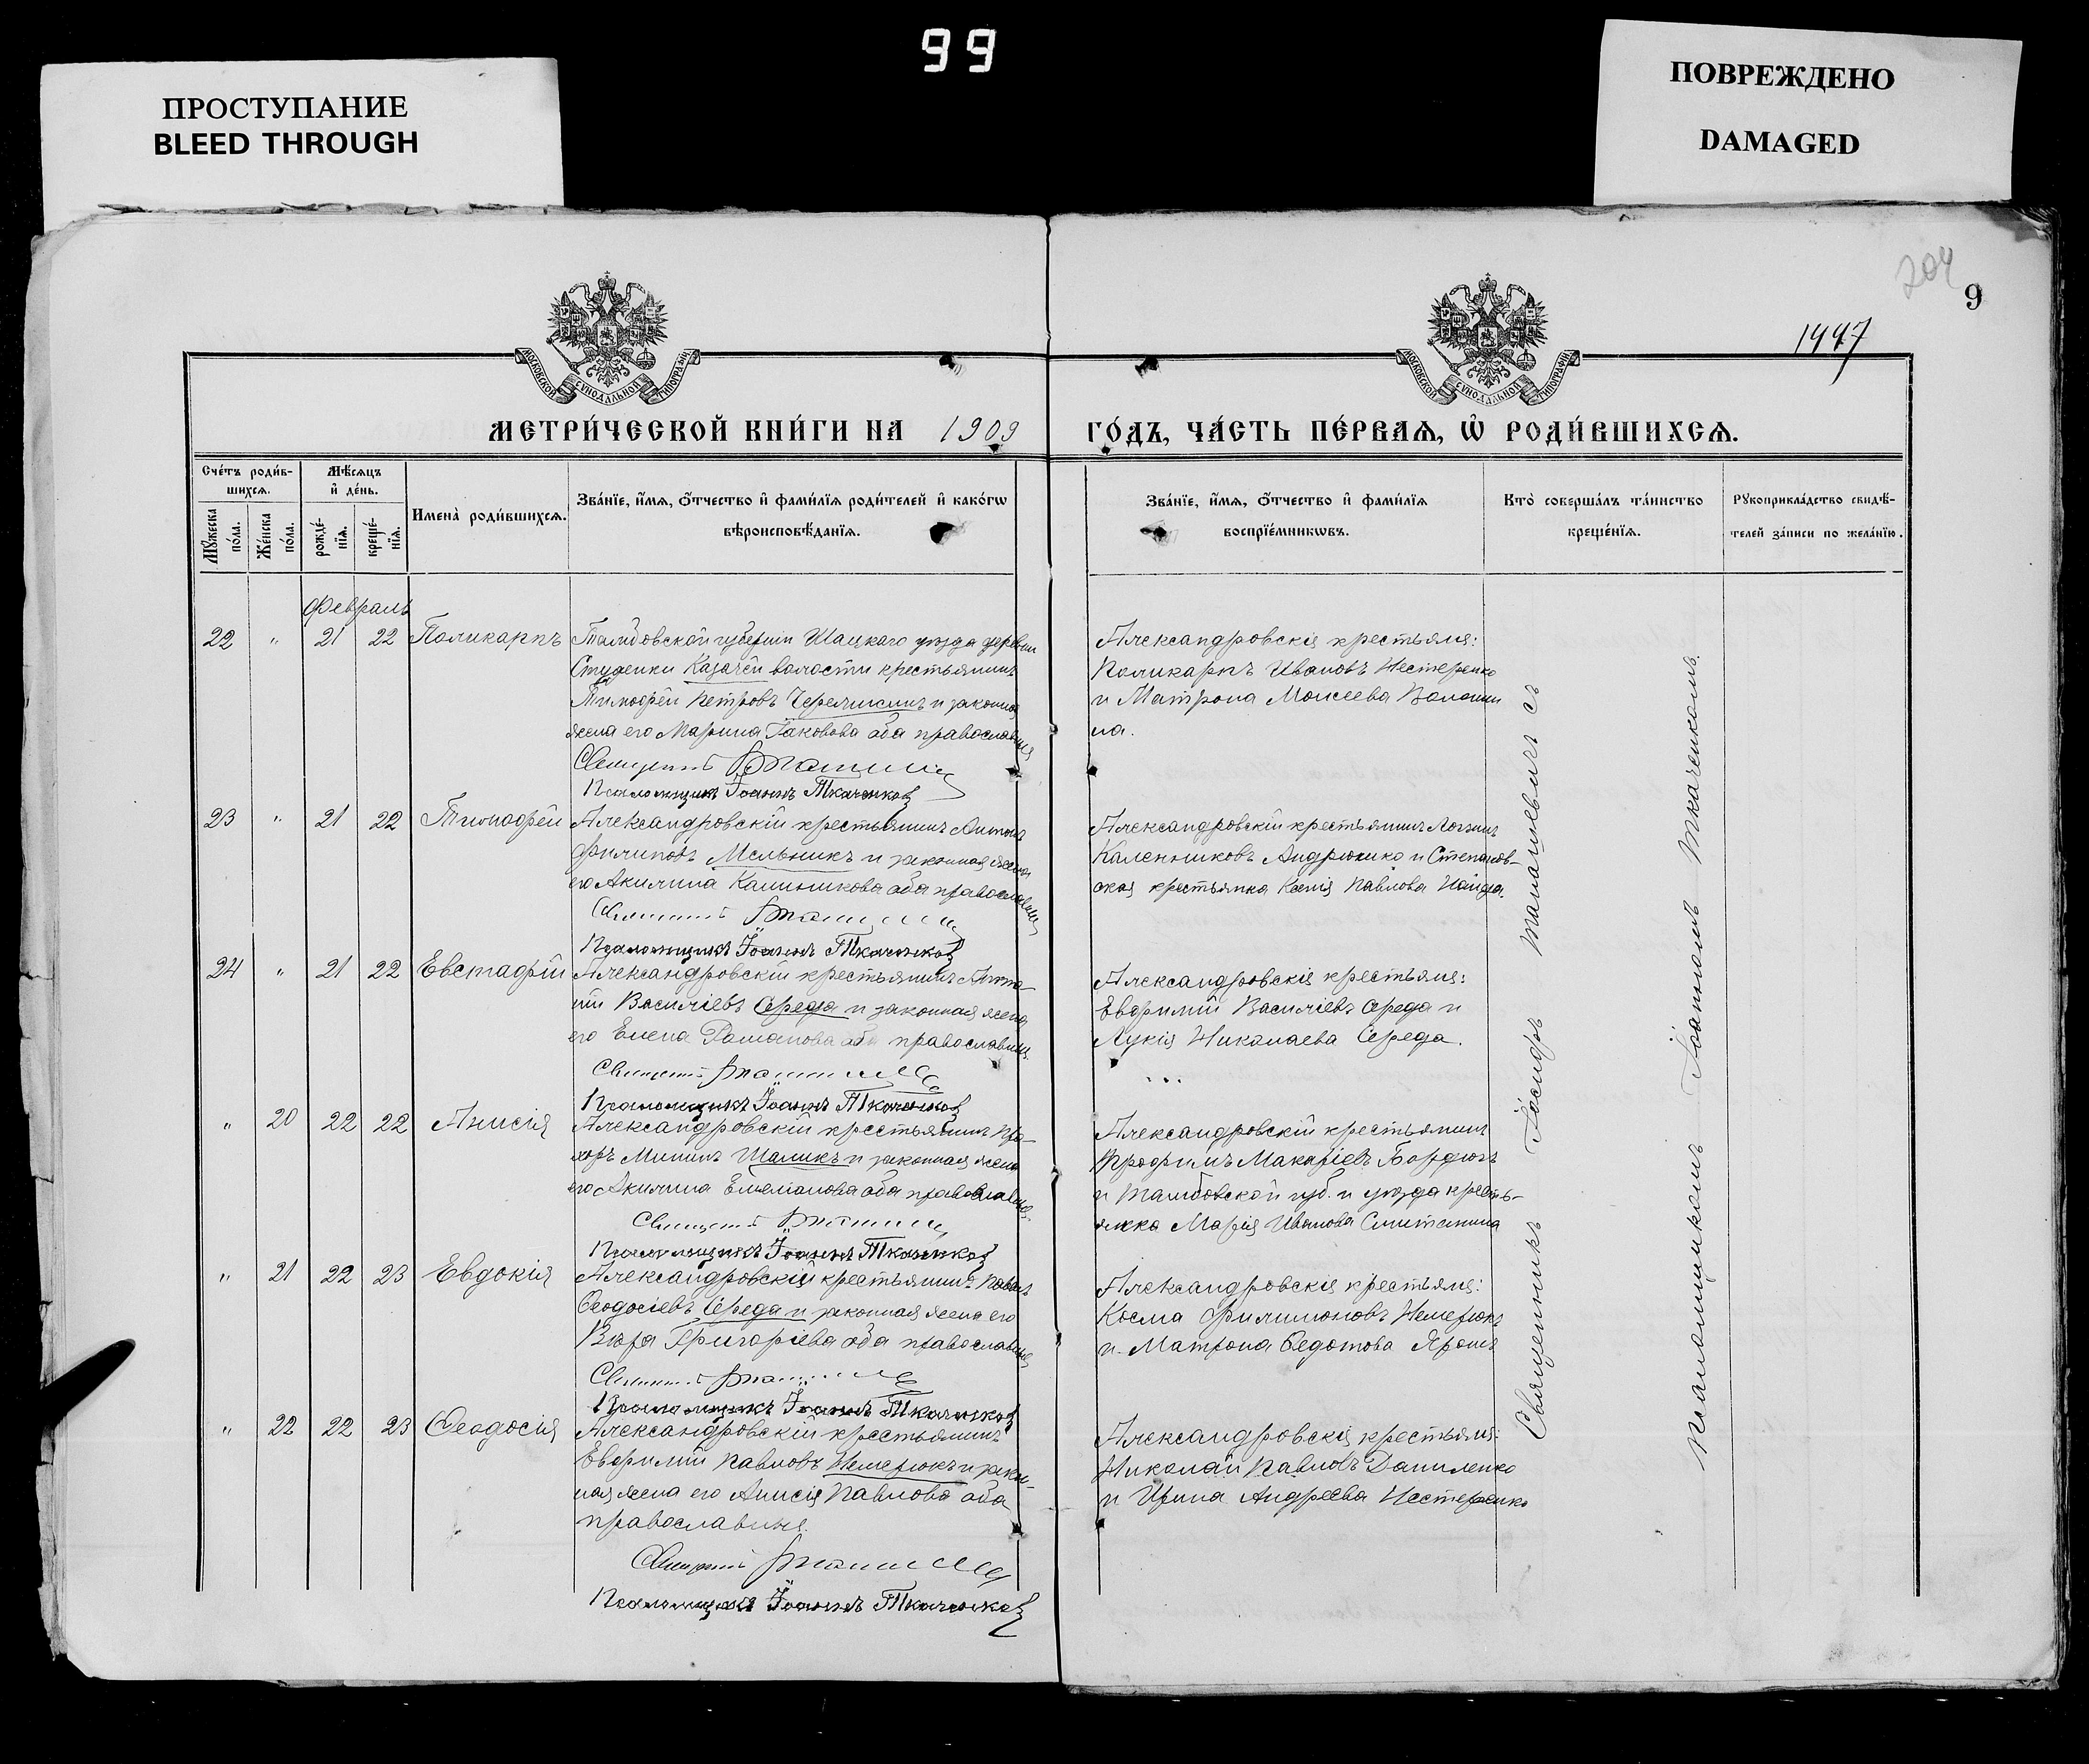 99
ПРОСТУПАНИЕ
BLEED THROUGH
ПОВРЕЖДЕНО
DAMAGED
204
9
1447
МОСКОВСКОЙ СѴНОДАЛЬНОЙ ТИПОГРАФІИ
МОСКОВСКОЙ СѴНОДАЛЬНОЙ ТИПОГРАФІИ
МЕТРИ́ЧЕСКОЙ КНИ́ГИ НА 1909 ГО́ДЪ, ЧА́СТЬ ПЕ́РВАѦ, Ѡ҆ РОДИ́ВШИХСѦ.
Сче́тъ роди́в-
шихсѧ.
Мꙋ́жеска по́ла.
Же́нска по́ла.
Мѣ́сѧцъ
и҆ де́нь.
рожде́-
нїѧ.
креще́-
нїѧ.
Имена̀ роди́вшихсѧ.
Зва́нїе, и҆́мѧ, ѻ҆́тчество и҆ фами́лїѧ роди́телей и҆ како́гѡ
вѣроисповѣ́данїѧ.
Зва́нїе, и҆́мѧ, ѻ҆́тчество и҆ фами́лїѧ
воспрїе́мникѡвъ.
Кто̀ соверша́лъ та́инство
креще́нїѧ.
Рꙋкоприкла́дство свидѣ́-
телей за́писи по жела́нїю.
Февраль
22 " 21 22 Поликарпъ Тамбовской губерніи Шацкаго уѣзда деревни
Студенки Казачей волости крестьянинъ
Тимофей Петровъ Черемисинъ и законная
жена его Марина Іаковова оба православные
Священникъ
Псаломщикъ Іоаннъ Ткаченко
Александровскіе крестьяне:
Поликарпъ Ивановъ Нестеренко
и Матрона Моисеева Волоши
на.
23 " 21 22 Тимофей Александровскій крестьянинъ Антонъ
Филиповъ Мельникъ и законная жена
его Акилина оба православные
Священникъ
Псаломщикъ Іоаннъ Ткаченко
Александровскій крестьянинъ Логинъ
Калениковъ Андрющенко и Степанов-
ская крестьянка Ксенія Павлова
24 " 21 22 Евстафій Александровскій крестьянинъ
Василіевъ Середа и законная жена
его Елена Романова оба православные
Священникъ
Псаломщикъ Іоаннъ Ткаченко
Александровскіе крестьяне:
Евфимій Василіевъ Середа и
Лукія Николаева Середа.
" 20 22 22 Анисія Александровскій крестьянинъ Про-
хоръ Мининъ Шаликъ и законная жена
его Акилина Емеліанова оба православные.
Священникъ
Псаломщикъ Іоаннъ Ткаченко
Александровскій крестьянинъ
Трофимъ Макаріевъ Бордюгъ
и Тамбовской губ. и уѣзда кресть-
янка Марія Иванова
" 21 22 23 Евдокія Александровскій крестьянинъ Павелъ
Ѳеодосіевъ Середа и законная жена его
Вѣра Григоріева оба православные
Священникъ
Псаломщикъ Іоаннъ Ткаченко
Александровскіе крестьяне:
Косма Филимоновъ Немерюкъ
и Матрона Ѳедотова Ярошъ
" 22 22 23 Ѳеодосія Александровскій крестьянинъ
Евфимій Павловъ Немерюкъ и закон-
ная жена его Анисія Павлова оба
православные.
Священникъ
Псаломщикъ Іоаннъ Ткаченко
Александровскіе крестьяне:
Николай Павловъ Даниленко
и Ирина Андреева Нестеренко
Священникъ Іосифъ съ
Псаломщикомъ Іоанномъ Ткаченкомъ.